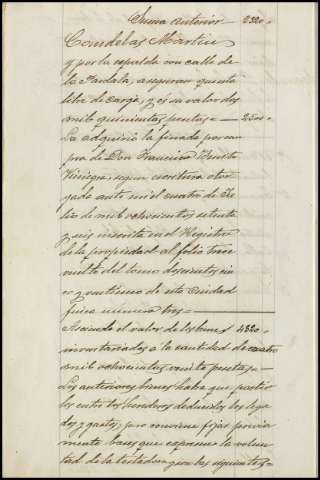 Suma anterior 2320.
Candelas Martin
y por la espalda con calle de
la , aseguran que está
libre de carga, y es su valor dos
mil quinientas pesetas = 2500.
La adquirió la finada por com
pra de Don Francisco Benito
, segun escritura otor
gado ante mi el cuatro de Ju
lio de mil ochocientos setenta
y seis inscrita en el Registro
de la propiedad al folio trece
vuelto del tomo doscientos cin
co y septimo de esta Ciudad
finca numero tres
Asciende el valor de los bienes 4820.
inventariados a la cantidad de cuatro
mil ochocientas veinte pesetas =
Los anteriores bienes habra que partir
los entre los herederos deducidos los lega
dos y gastos, y conviene fijar previa
mente bases que expresen la volun
tad de la testadora y son las siguientes =